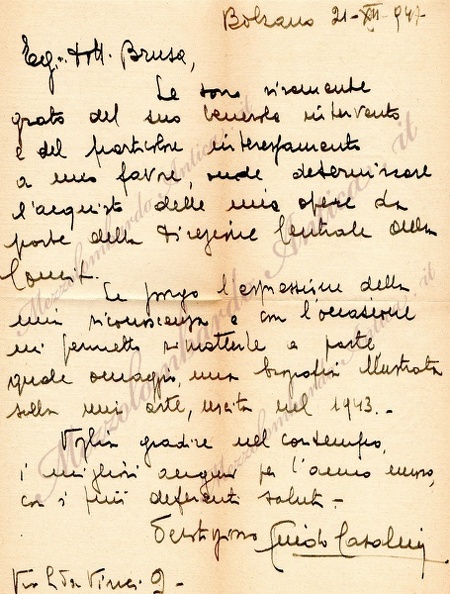 Bolzano 21-XII-947
Egr. Dott. Brusa,
Le sono vivamente
grato del suo benevolo intervento
e del particolare interessamento
a mio favore, onde determinare
l'acquisto delle mie opere da
parte della Direzione Centrale della
Comit.
Le porgo l'espressione della
mia riconoscenza e con l'occasione
mi permetto rimetterle a parte
quale omaggio, una biografia illustrata
sulla mia arte, uscita nel 1943.-
Voglia gradire nel contempo,
i migliori auguri per l'anno nuovo,
con i più deferenti saluti-
Guido Casalini
Via L. da Vinci 2-
Mezzolombardo Antica.it